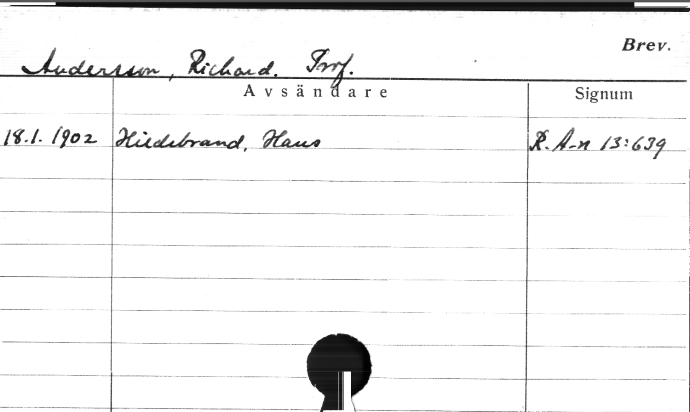 Brev.
Andersson, Richard. Prof.
Avsändare Signum
18.1.1902 Hildebrand, Hans R. A-n 13:639